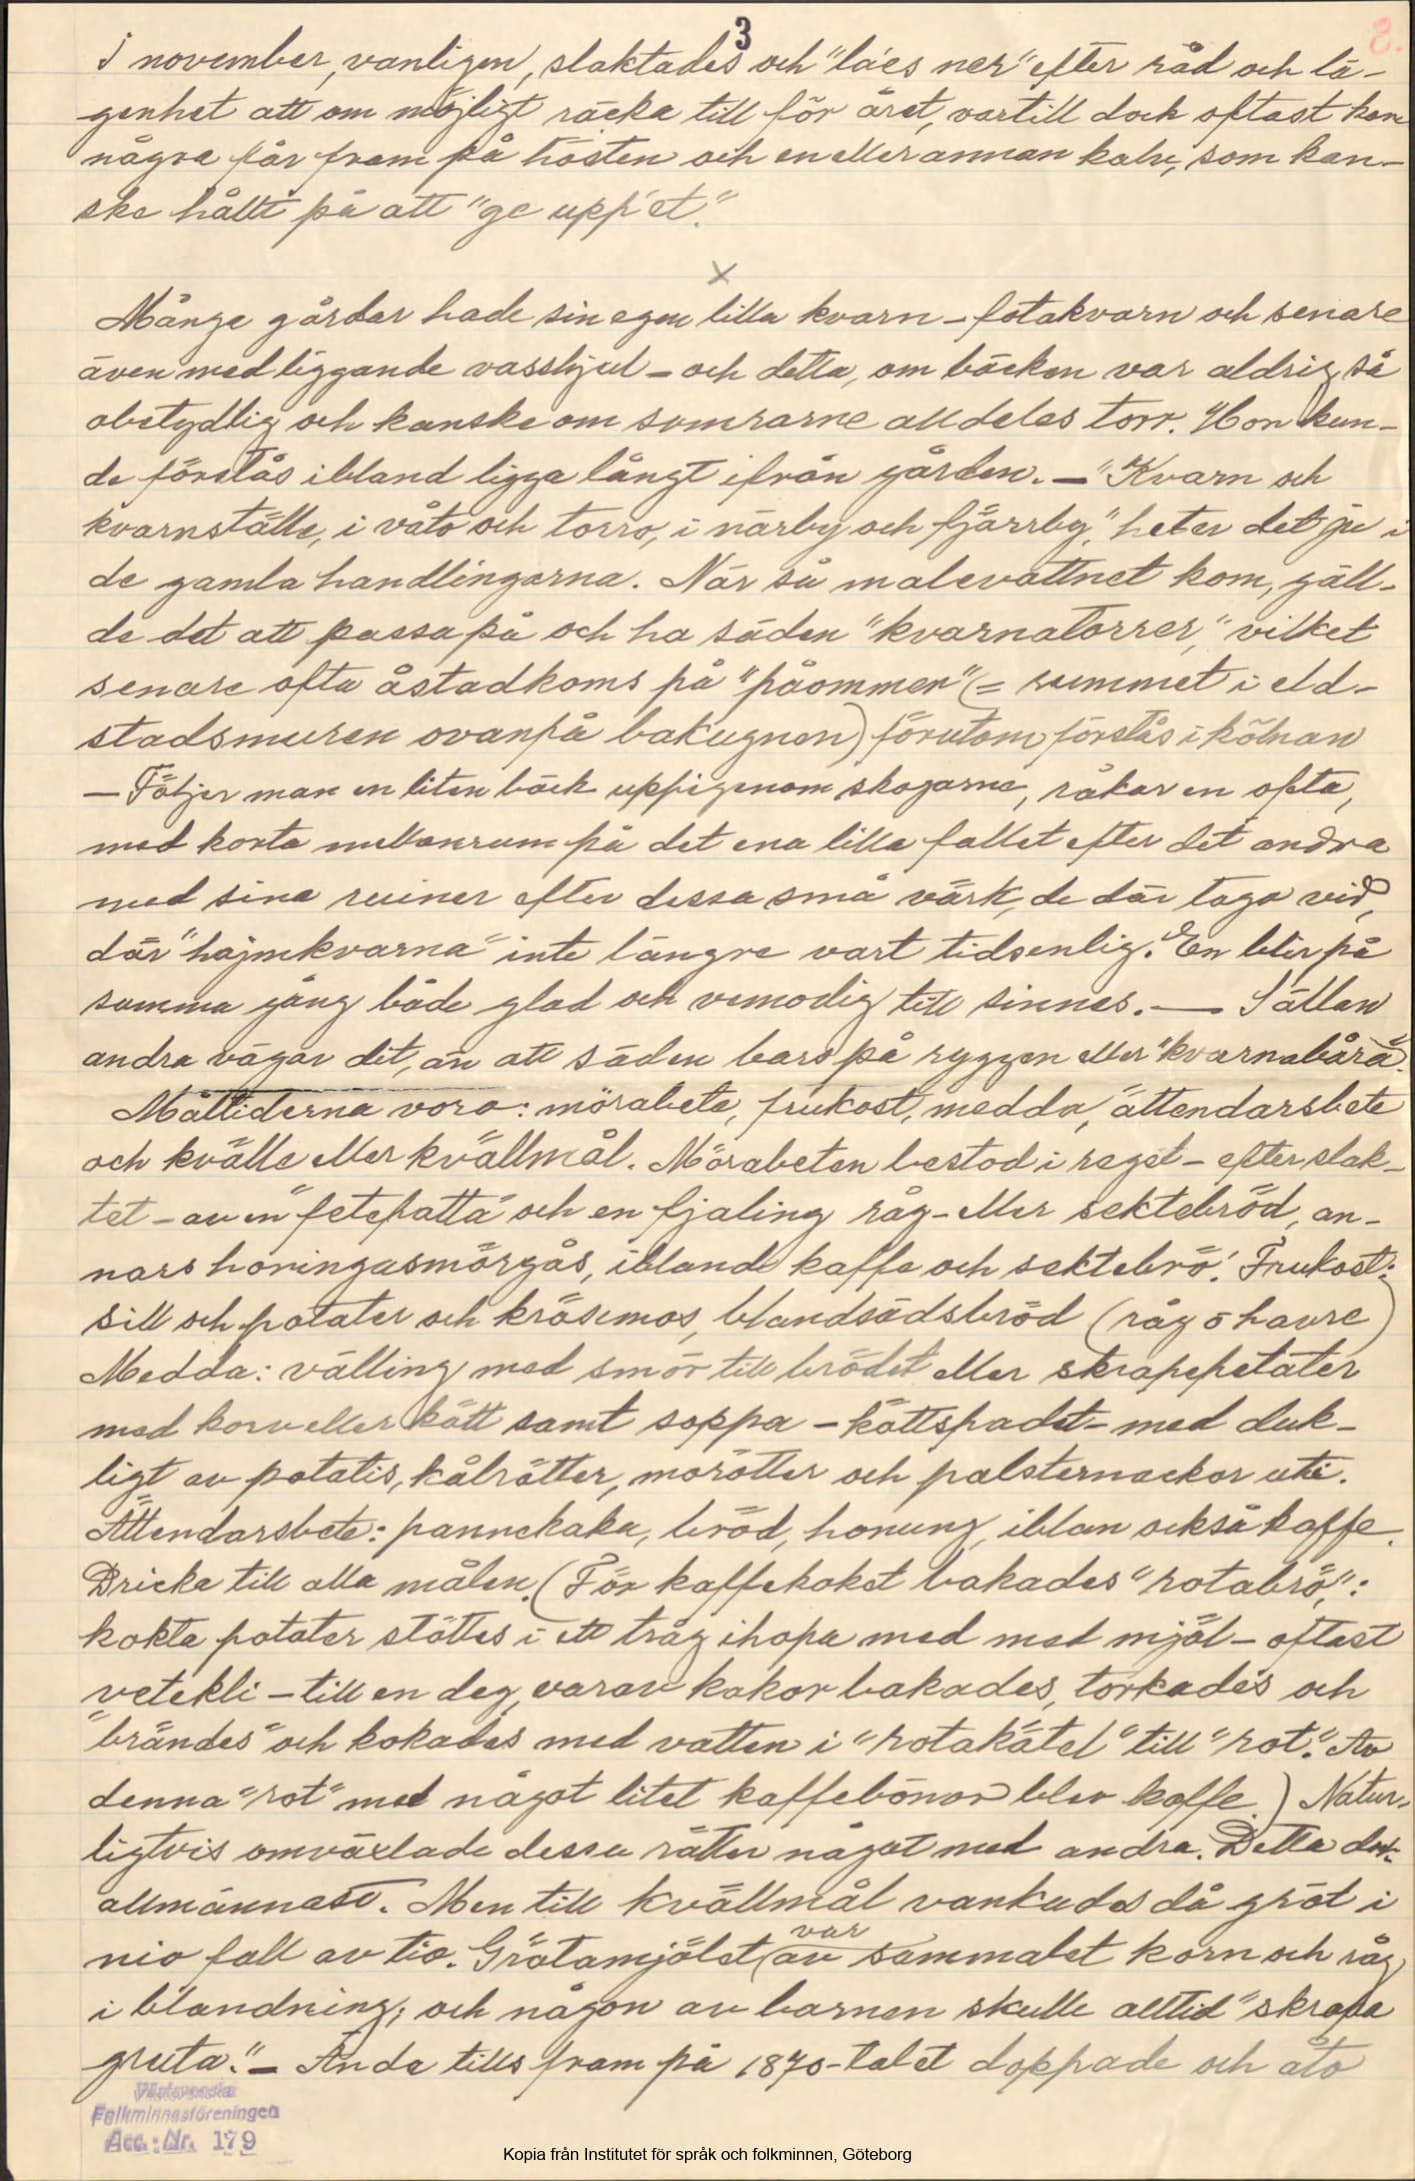 3
8.
I november, vanligen, slaktades och "láes ner" efter råd och lä-
genhet att om möjligt räcka till för året, vartill dock oftast kom
några får fram på hösten och en eller annan kalv, som kan-
ske hållt på att "ge upp'et."
x
Många gårdar hade sin egen lilla kvarn - fotakvarn och senare
även med liggande vasshjul - och detta, om bäcken var aldrig så
obetydlig och kanske om somrarne alldeles torr. Hon kun-
de förstås ibland ligga långt ifrån gården. - "Kvarn och
kvarnställe, i våto och torro, i närby och fjärrby," heter det ju i
de gamla handlingarna. När så malevattnet kom, gäll-
de det att passa på och ha säden "kvarnatorrer," vilket
senare ofta åstadkoms på "påommen" (= rummet i eld-
stadsmuren ovanpå bakugnen) förutom förstås i kölnan
- Följer man en liten bäck upp igenom skogarna, råkar en ofta,
med korta mellanrum på det ena lilla fallet efter det andra
med sina ruiner efter dessa små värk, de där togo vid,
där "hajmkvarna" inte längre vart tidsenlig. En blir på
samma gång både glad och vemodig till sinnes. — Sällan
andra vägar dit, än att säden bars på ryggen eller "kvarnabårä".
Måltiderna voro: mörabete, frukost, medda, ättendarsbete
och kvälle eller kvällmål. Mörabeten bestod i regel - efter slak-
tet - av en "fetefatta" och en fjaling råg- eller sektebröd, an-
nars honingasmörgås, ibland kaffe och sektebrö'. Frukost:
sill och potater och kräsemos, blandsädsbröd (råg o havre)
Medda: välling med smör till brödet eller skrapepetäter
med korv eller kött samt soppa - köttspadet - med duk-
tigt av potatis, kålrötter, morötter och palsternackor uti.
Ättendarsbete: pannekaka, bröd, honung, iblan också kaffe.
Dricka till alla målen. (För kaffekoket bakades "rotabrö,":
kokta potater stöttes i ett tråg ihopa med med mjöl - oftast
vetekli - till en deg, varav kakor bakades, torkades och
"brändes" och kokades med vatten i "rotakätel" till "rot." Av
denna "rot" med något litet kaffebönor blev kaffe.) Natur-
ligtvis omväxlade dessa rätter något med andra. Detta det
allmännast. Men till kvällmål vankades då gröt i
nio fall av tio. Grötamjölet var av sammalet korn och råg
i blandning; och någon av barnen skulle alltid "skrapa
gruta." - Ända tills fram på 1870-talet doppade och åto
Västsvenska
Folkminnesföreningen
Acc. Nr. 179
Kopia från Institutet för språk och folkminnen, Göteborg